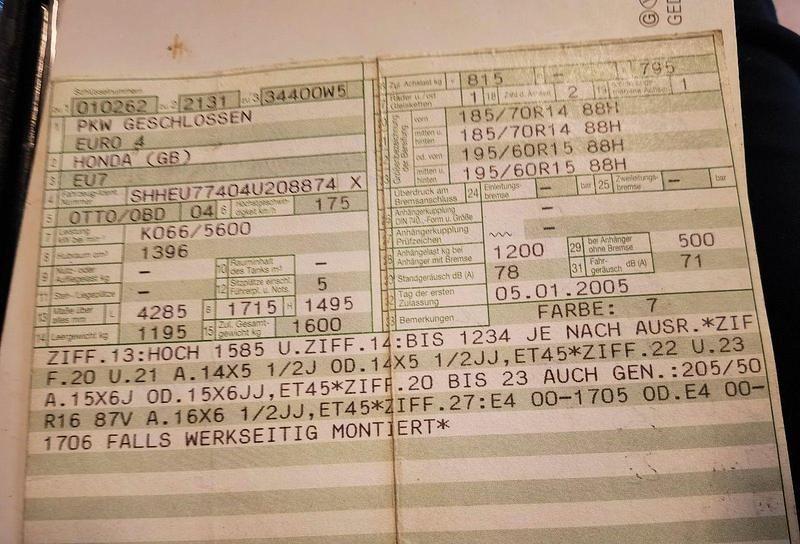 GED
Schlüsselnummern
zu 1 010262 zu 2 2131 zu 3 34400W5
1 PKW GESCHLOSSEN
EURO 4
2 HONDA (GB)
3 EU7
4 Fahrzeug-Ident. Nummer SHHEU77404U208874 X
5 OTTO/OBD 04 6 Höchstgeschwindigkeit km/h 175
7 Leistung kW bei min K066/5600
8 Hubraum cm³ 1396
9 Nutz- oder Aufliegelast kg – 10 Rauminhalt des Tanks m³ –
11 Steh-/Liegeplätze – 12 Sitzplätze einschl. Führerpl. u. Nots. 5
13 Maße über alles mm L 4285 B 1715 H 1495
14 Leergewicht kg 1195 15 Zul. Gesamtgewicht kg 1600
Zul. Achslast kg 815 – 795
Räder u./od. Gleisketten 1 18 Zahl d. Achsen 2 19 1
Größenbezeichnung der Bereifung
vorn 185/70R14 88H
mitten u. hinten 185/70R14 88H
od. vorn 195/60R15 88H
mitten u. hinten 195/60R15 88H
Überdruck am Bremsanschluss 24 Einleitungsbremse – bar 25 Zweileitungsbremse – bar
Anhängerkupplung DIN 740..-Form u. Größe –
Anhängerkupplung Prüfzeichen –
Anhängelast kg bei Anhänger mit Bremse 1200 29 bei Anhänger ohne Bremse 500
Standgeräusch dB (A) 78 31 Fahrgeräusch dB (A) 71
Tag der ersten Zulassung 05.01.2005
Bemerkungen FARBE: 7
ZIFF.13:HOCH 1585 U.ZIFF.14:BIS 1234 JE NACH AUSR.*ZIF
F.20 U.21 A.14X5 1/2J OD.14X5 1/2JJ,ET45*ZIFF.22 U.23
A.15X6J OD.15X6JJ,ET45*ZIFF.20 BIS 23 AUCH GEN.:205/50
R16 87V A.16X6 1/2JJ,ET45*ZIFF.27:E4 00-1705 OD.E4 00-
1706 FALLS WERKSEITIG MONTIERT*